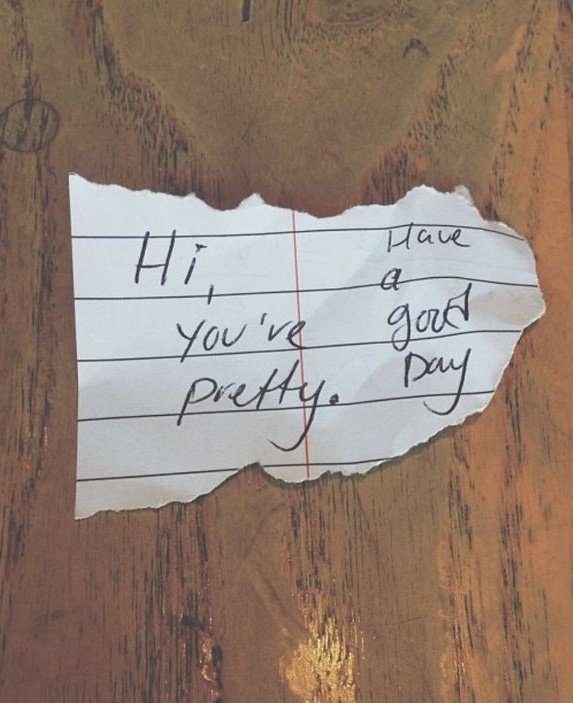 Hi,
you've
pretty.
Have
a
good
Day